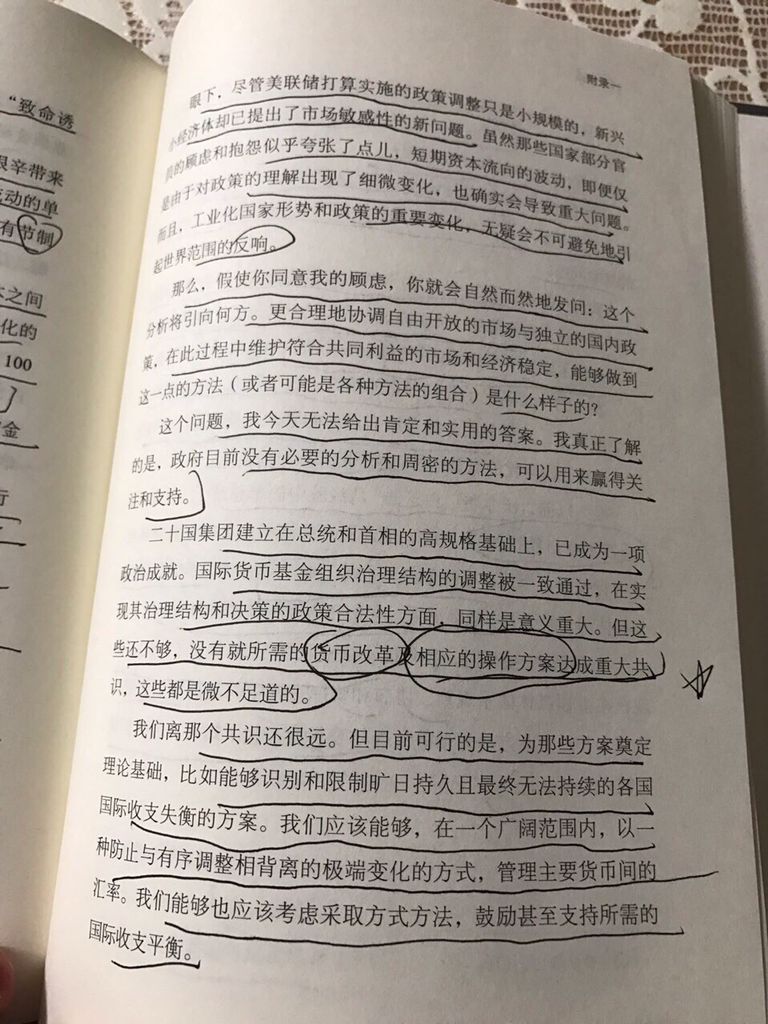 "致命诱
艰辛带来
流动的单
有节制
本之间
化的
100
金
行
附录一
眼下，尽管美联储打算实施的政策调整只是小规模的，新兴
小经济体却已提出了市场敏感性的新问题。虽然那些国家部分官
员的顾虑和抱怨似乎夸张了点儿，短期资本流向的波动，即便仅
是由于对政策的理解出现了细微变化，也确实会导致重大问题。
而且，工业化国家形势和政策的重要变化，无疑会不可避免地引
起世界范围的反响。
那么，假使你同意我的顾虑，你就会自然而然地发问：这个
分析将引向何方。更合理地协调自由开放的市场与独立的国内政
策，在此过程中维护符合共同利益的市场和经济稳定，能够做到
这一点的方法（或者可能是各种方法的组合）是什么样子的？
这个问题，我今天无法给出肯定和实用的答案。我真正了解
的是，政府目前没有必要的分析和周密的方法，可以用来赢得关
注和支持。
二十国集团建立在总统和首相的高规格基础上，已成为一项
政治成就。国际货币基金组织治理结构的调整被一致通过，在实
现其治理结构和决策的政策合法性方面，同样是意义重大。但这
些还不够，没有就所需的货币改革及相应的操作方案达成重大共
识，这些都是微不足道的。
我们离那个共识还很远。但目前可行的是，为那些方案奠定
理论基础，比如能够识别和限制旷日持久且最终无法持续的各国
国际收支失衡的方案。我们应该能够，在一个广阔范围内，以一
种防止与有序调整相背离的极端变化的方式，管理主要货币间的
汇率。我们能够也应该考虑采取方式方法，鼓励甚至支持所需的
国际收支平衡。